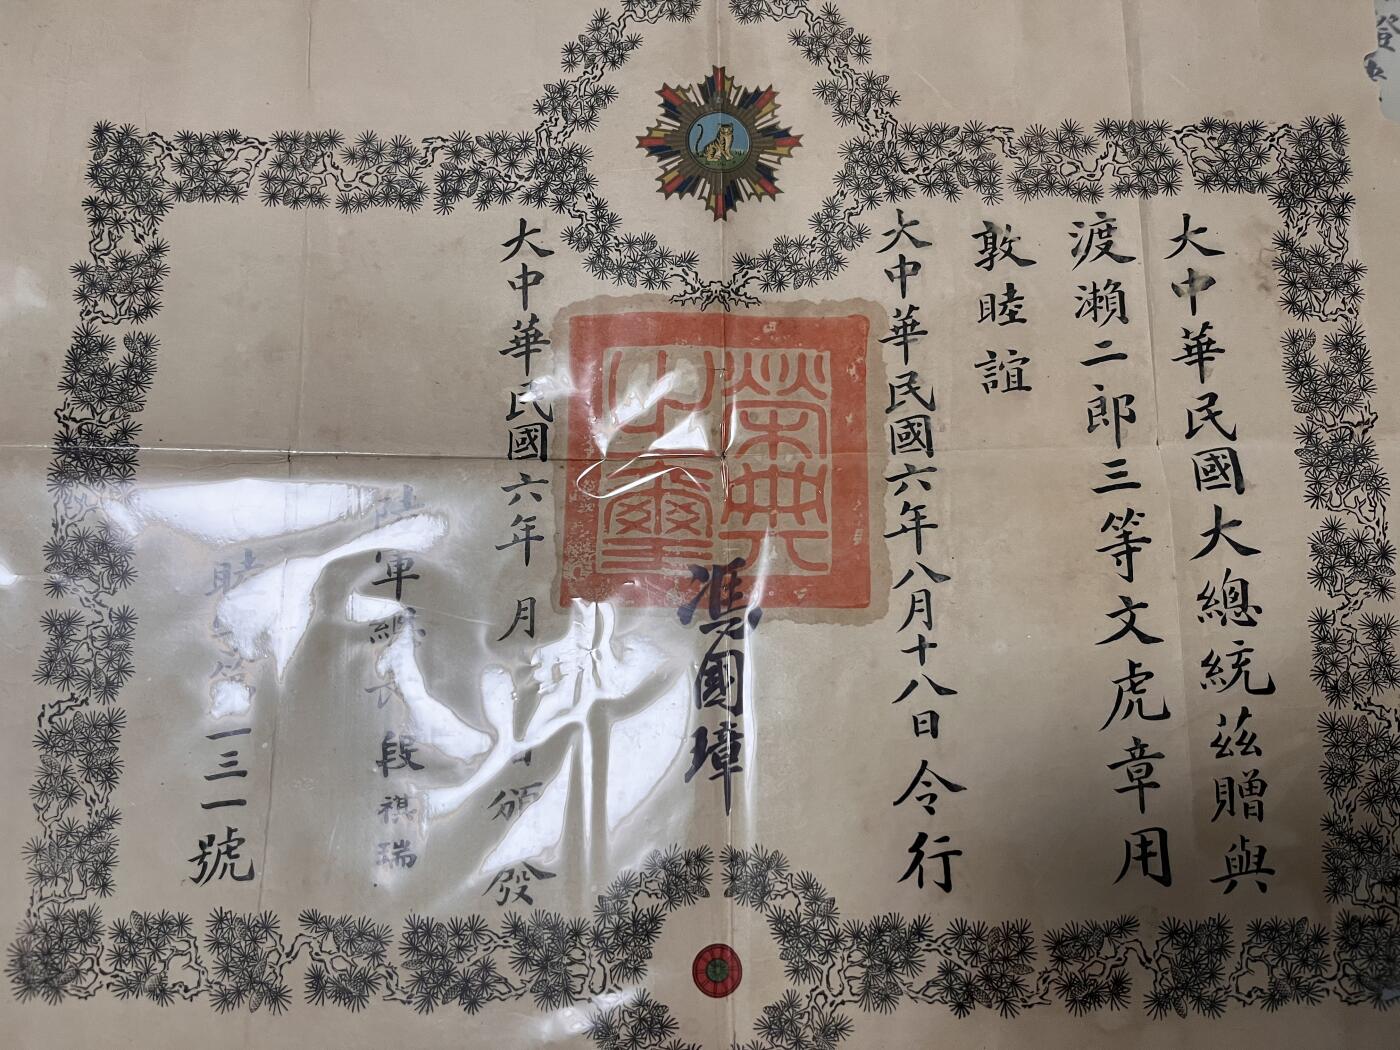 大中華民國大總統茲贈與
渡瀨二郎三等文虎章用
敦睦誼
大中華民國六年八月十八日令行
榮典之璽
馮國璋
大中華民國六年 月 日頒發
陸軍總長段祺瑞
睦字第一三一號